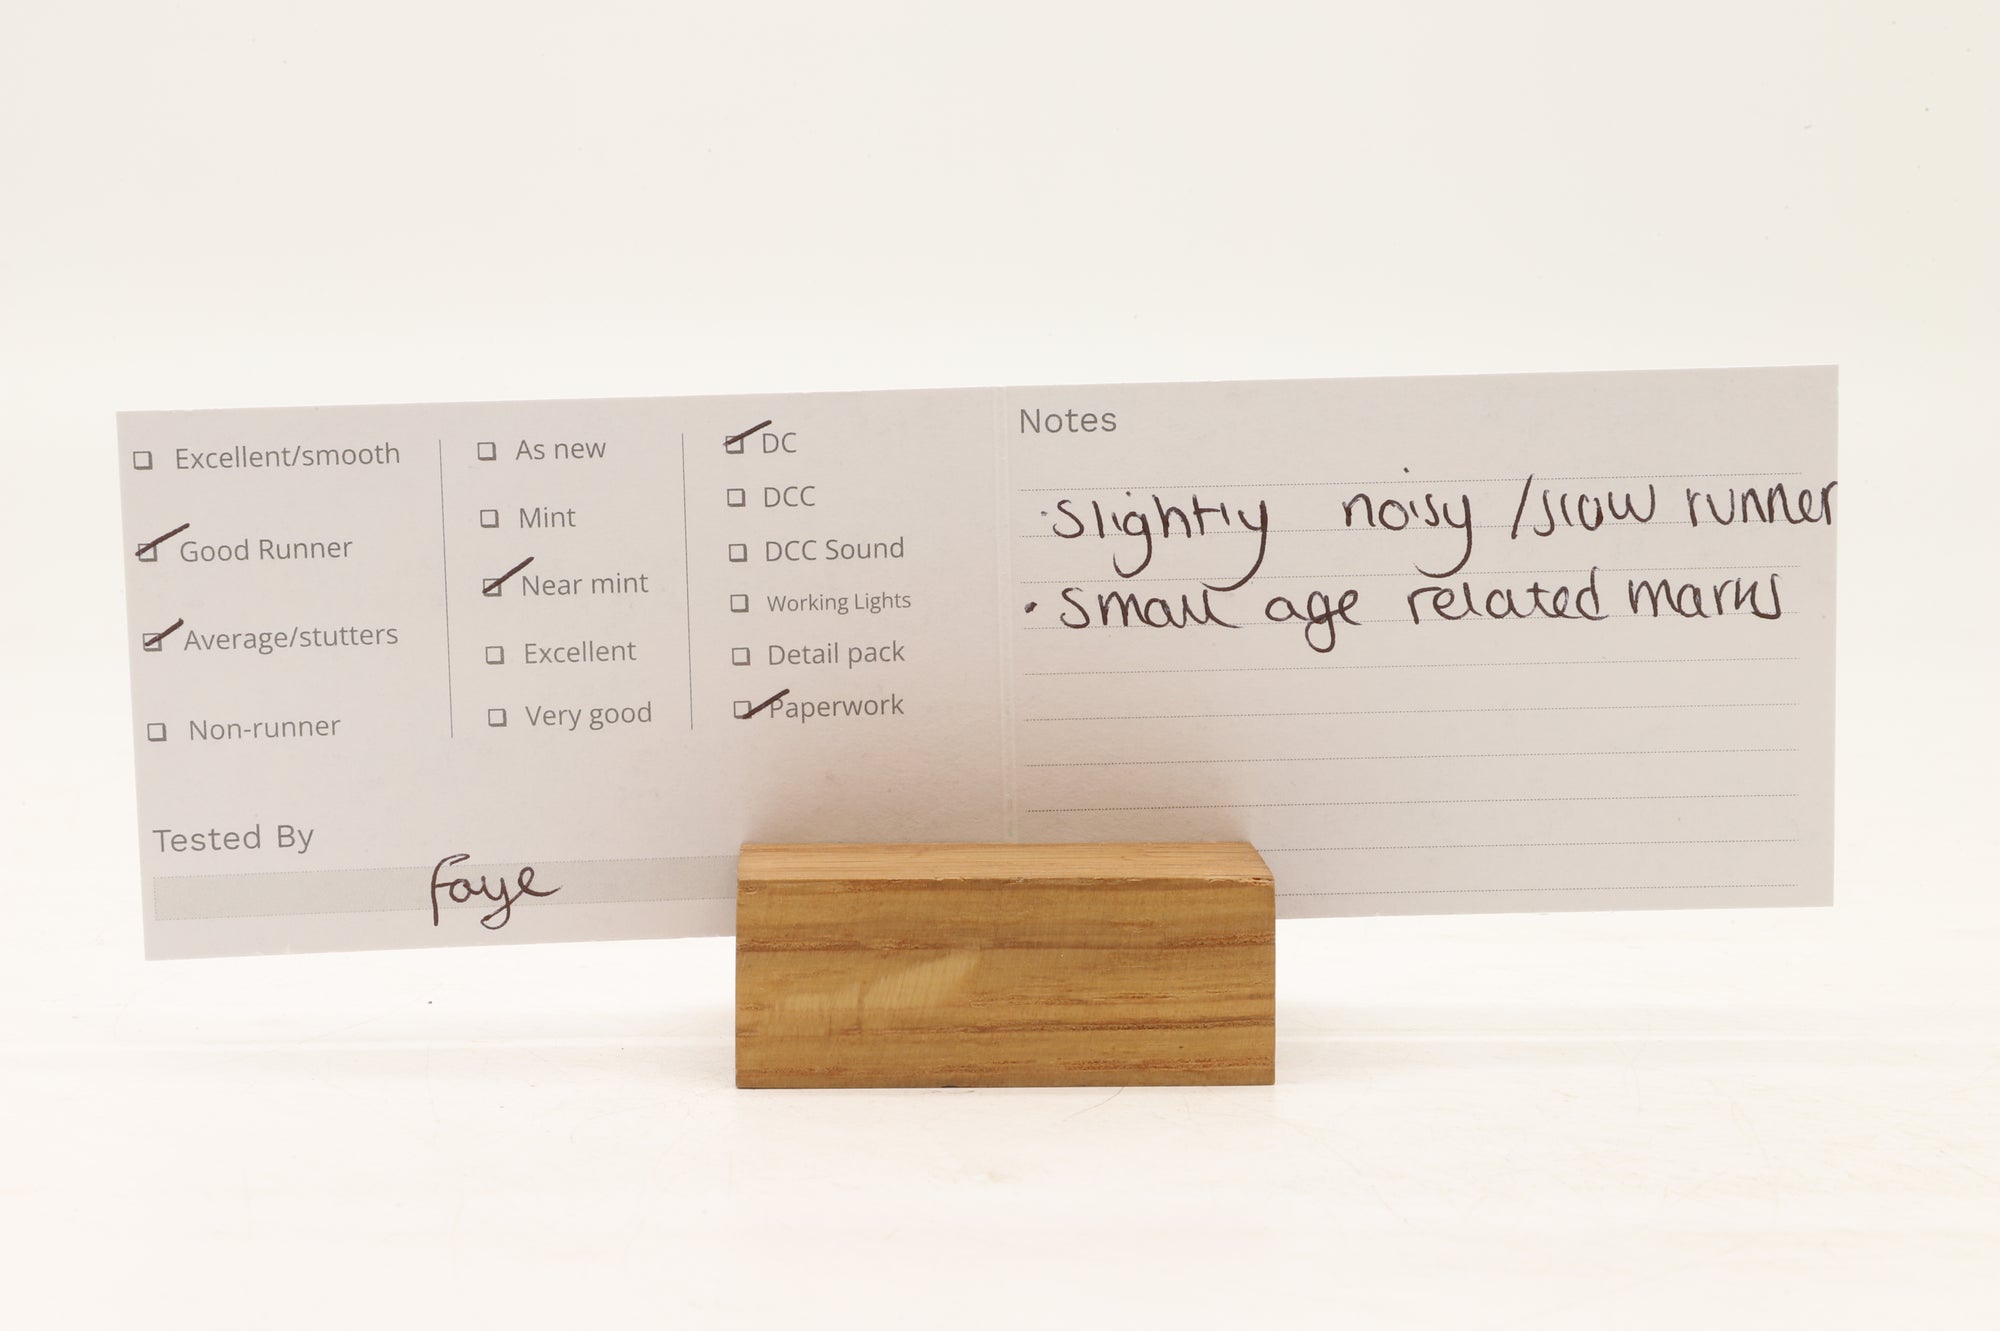 Excellent/smooth
Good Runner
Average/stutters
Non-runner
As new
Mint
Near mint
Excellent
Very good
DC
DCC
DCC Sound
Working Lights
Detail pack
Paperwork
Tested By
Faye
Notes
· Slightly noisy / slow runner
· Small age related marks